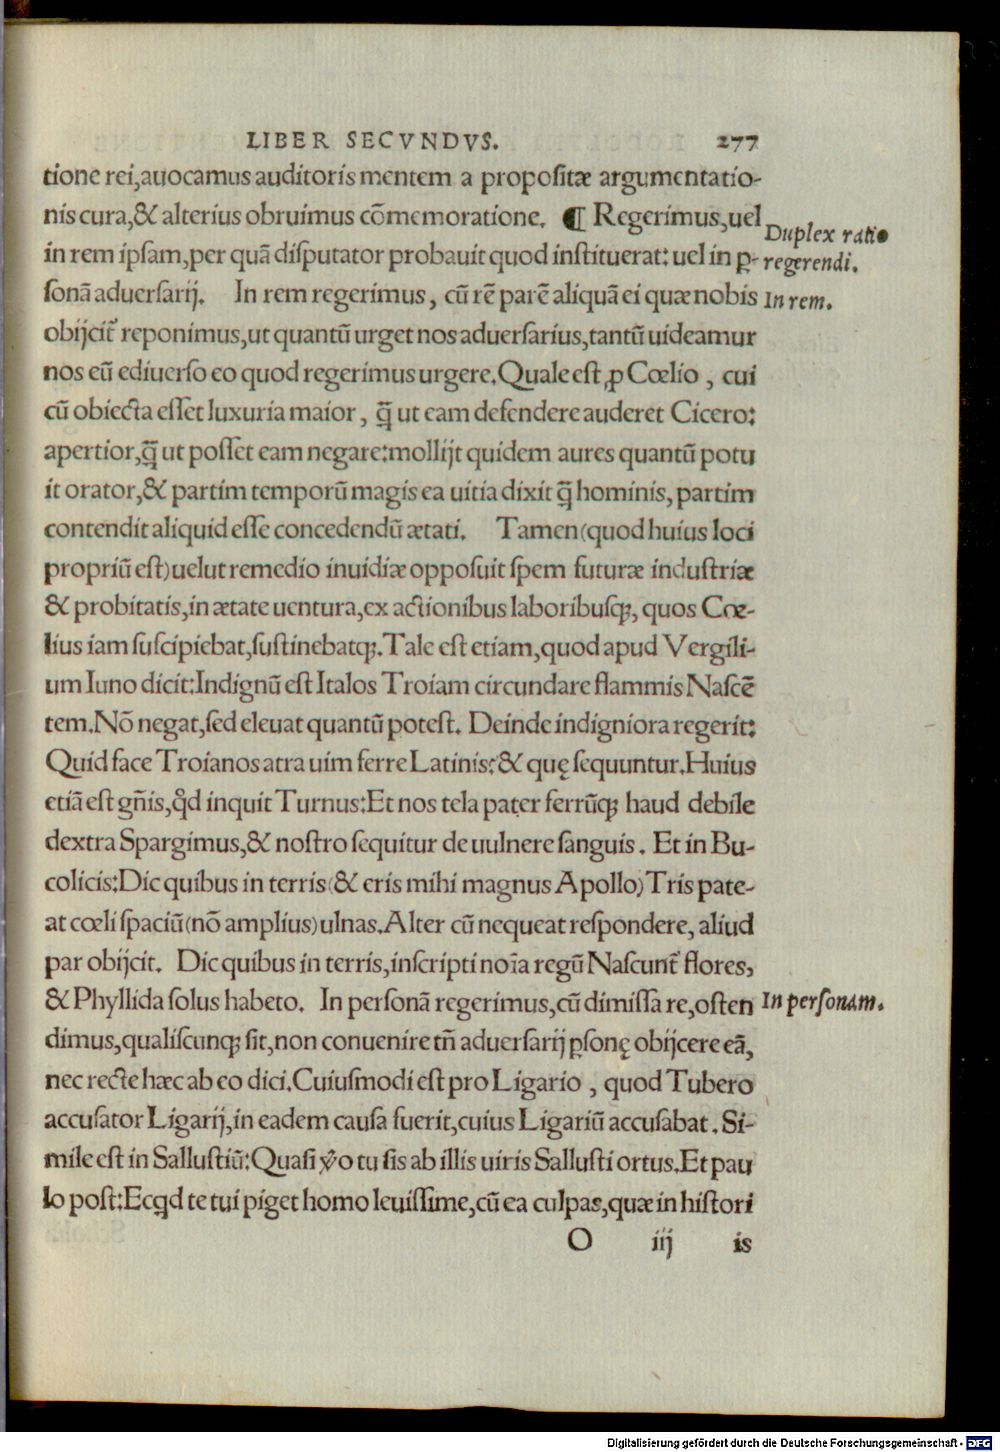 LIBER SECVNDVS. 277
tione rei,auocamus auditoris mentem a propositæ argumentatio-
nis cura,& alterius obruimus cōmemoratione. ¶ Regerimus,uel
Duplex ratio
in rem ipsam,per quā disputator probauit quod instituerat: uel in ꝑ-
regerendi.
sonā aduersarij. In rem regerimus, cū rē parē aliquā ei quæ nobis
In rem.
obijcit᷑ reponimus,ut quantū urget nos aduersarius,tantū uideamur
nos eū ediuerso eo quod regerimus urgere.Quale est ꝓ Cœlio, cui
cū obiecta esset luxuria maior, q̄ ut eam defendere auderet Cicero:
apertior,q̄ ut posset eam negare:mollijt quidem aures quantū potu
it orator,& partim temporū magis ea uitia dixit q̄ hominis, partim
contendit aliquid esse concedendū ætati. Tamen(quod huius loci
propriū est)uelut remedio inuidiæ opposuit spem futuræ industriæ
& probitatis,in ætate uentura,ex actionibus laboribusq;, quos Cœ-
lius iam suscipiebat,sustinebatq;.Tale est etiam,quod apud Vergili-
um Iuno dicit:Indignū est Italos Troiam circundare flammis Nascē
tem.Nō negat,sed eleuat quantū potest. Deinde indigniora regerit:
Quid face Troianos atra uim ferre Latinis:& quę sequuntur.Huius
etiā est gn̄is,qd̊ inquit Turnus:Et nos tela pater ferrūq; haud debile
dextra Spargimus,& nostro sequitur de uulnere sanguis. Et in Bu-
colicis:Dic quibus in terris(& eris mihi magnus Apollo)Tris pate-
at cœli spaciū(nō amplius)ulnas.Alter cū nequeat respondere, aliud
par obijcit. Dic quibus in terris,inscripti noīa regū Nascunt᷑ flores,
& Phyllida solus habeto. In personā regerimus,cū dimissa re,osten
In personam.
dimus,qualiscunq; sit,non conuenire tn̄ aduersarij ꝑsonę obijcere eā,
nec recte hæc ab eo dici.Cuiusmodi est pro Ligario, quod Tubero
accusator Ligarij,in eadem causa fuerit,cuius Ligariū accusabat. Si-
mile est in Sallustiū:Quasi ṽo tu sis ab illis uiris Sallusti ortus.Et pau
lo post:Ecqd te tui piget homo leuissime,cū ea culpas,quæ in histori
O iij is
Digitalisierung gefördert durch die Deutsche Forschungsgemeinschaft - DFG